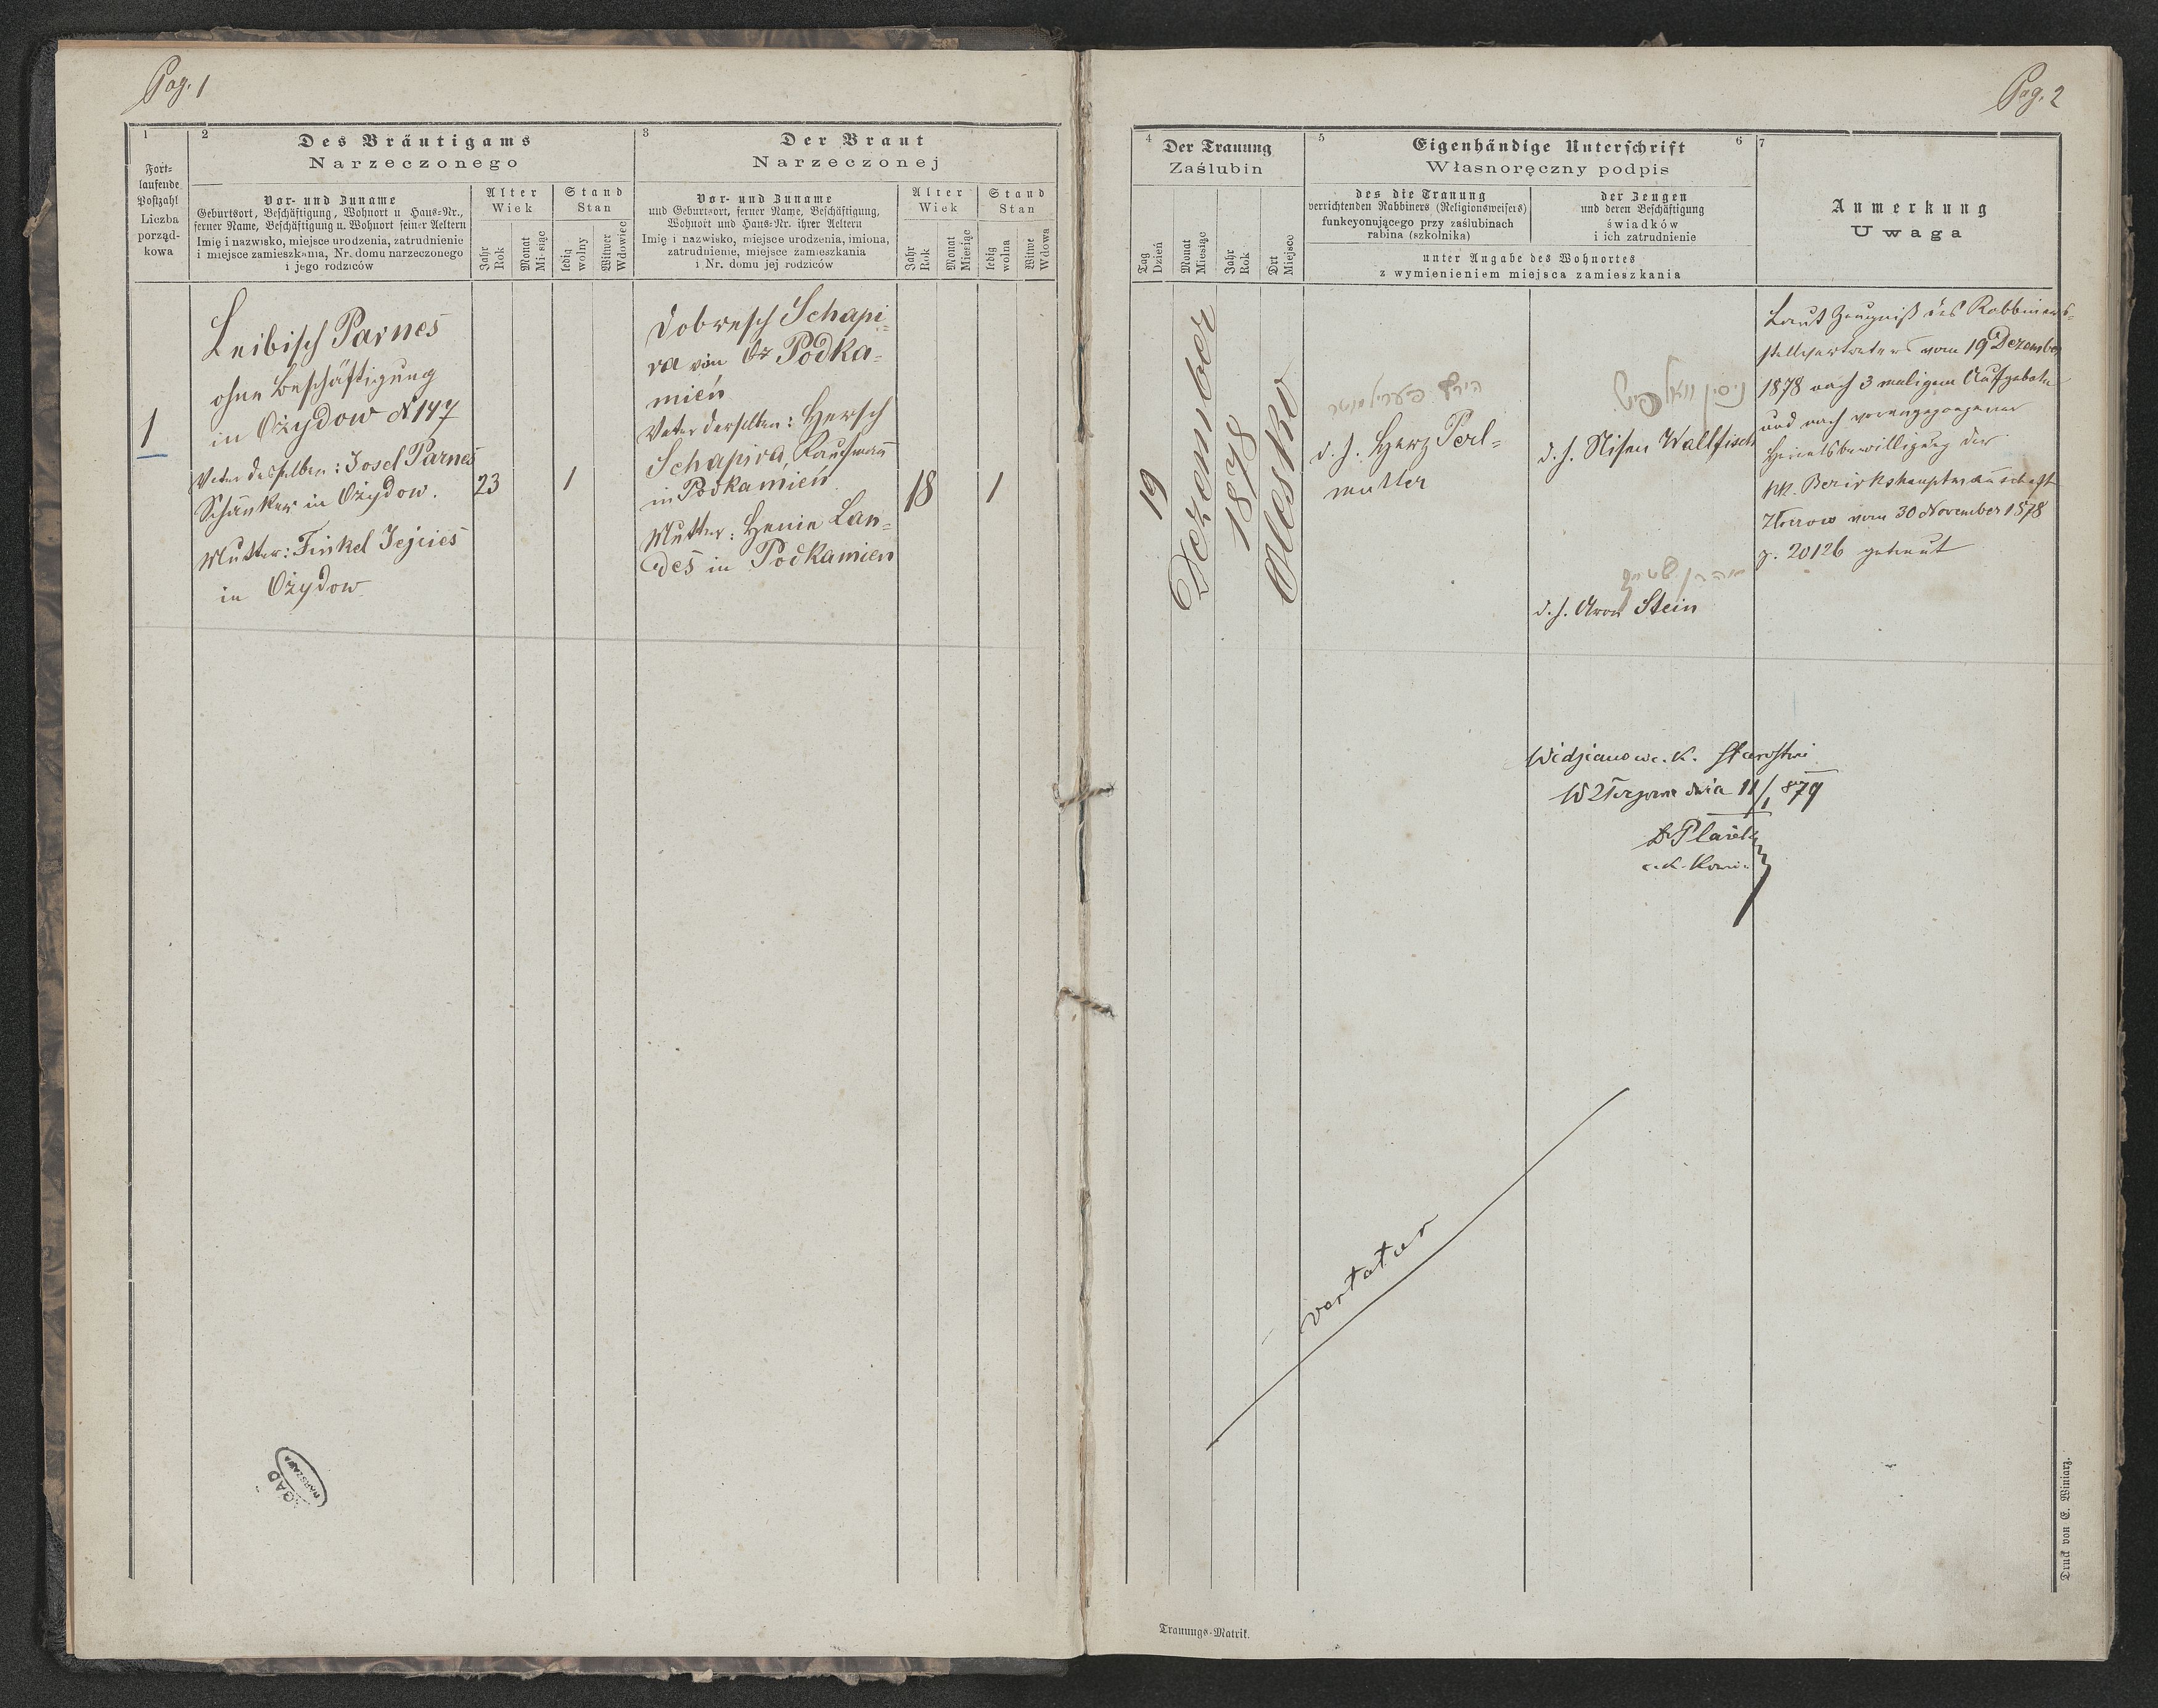 Pag. 1
1
Fort-
laufende
Postzahl
Liczba
porząd-
kowa
2
Des Bräutigams
Narzeczonego
Vor- und Zuname
Geburtsort, Beschäftigung, Wohnort u Haus-Nr.,
ferner Name, Beschäftigung u. Wohnort seiner Aeltern
Imię i nazwisko, miejsce urodzenia, zatrudnienie
i miejsce zamieszkania, Nr. domu narzeczonego
i jego rodziców
Alter
Wiek
Jahr
Rok
Monat
Miesiąc
Stand
Stan
ledig
wolny
Witwer
Wdowiec
3
Der Braut
Narzeczonej
Vor- und Zuname
und Geburtsort, ferner Name, Beschäftigung,
Wohnort und Haus-Nr. ihrer Aeltern
Imię i nazwisko, miejsce urodzenia, imiona,
zatrudnienie, miejsce zamieszkania
i Nr. domu jej rodziców
Alter
Wiek
Jahr
Rok
Monat
Miesiąc
Stand
Stan
ledig
wolna
Witwe
Wdowa
1
Leibisch Parnes
ohne Beschäftigung
in Ożydow N 147
Vater desselben: Josel Parnes
Schänker in Ożydow.
Mutter: Finkel Jejcies
in Ożydow
23
1
Dobresch Schapi-
ra von Podka-
mień
Vater derselben: Hersch
Schapira, Kaufmann
in Podkamień
Mutter: Henie Lan-
des in Podkamien
18
1
GAD
WARSZAWA
Pag. 2
4
Der Trauung
Zaślubin
Tag
Dzień
Monat
Miesiąc
Jahr
Rok
Ort
Miejsce
5
Eigenhändige Unterschrift
6
Własnoręczny podpis
des die Trauung
verrichtenden Rabbiners (Religionsweisers)
funkcyonującego przy zaślubinach
rabina (szkolnika)
der Zeugen
und deren Beschäftigung
świadków
i ich zatrudnienie
unter Angabe des Wohnortes
z wymienieniem miejsca zamieszkania
7
Anmerkung
Uwaga
19
Dezember
1878
Olesko
הירץ פערילמוטר
d. h. Herz Perl-
mutter
ניסין וואלפיש
d. h. Nisen Wallfisch
אהרן שטיין
d. h. Aron Stein
Laut Zeugniß des Rabbiners-
stellvertreters vom 19 Dezember
1878 nach 3 maligem Aufgebote
und nach vorangegangener
Heiratsbewilligung der
kk. Bezirkshauptmannschaft
Złoczow vom 30 November 1878
z. 20126 getraut
Widziano w c. k. Starostwie
W Złoczowie dnia 11/1 879
vertatur
Trauungs-Matrik.
Druck von E. Winiarz.